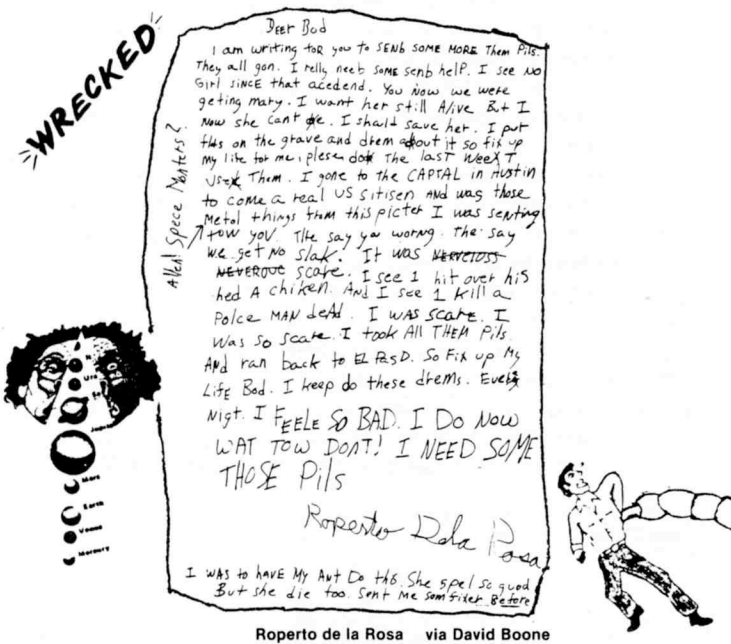 WRECKED
Deer Bod
I am writing for you to SENb SOME MORE Them Pils.
They all gon. I relly neeb SOME senb help. I see NO
Girl SiNCE that acedend. You Now we were
geting mary. I want her still Alive But I
Now she cant be. I should save her. I put
on the grave and drem about it so fix up
My life for me, plese dok The last Week I
Them. I gone to the CAPTAL in Austin
to come a real US sitisen AND wag those
Metal things from this picter I was senting
tow yoU. The say you worng. The say
we get No slak. It was NERVETOSS
NEVEROUC scare. I see 1 hit over his
hed A chiken. And I see 1 kill a
Polce MAN deAd. I WAS SCARE. I
Was so scare. I took All THEM Pils.
And ran back to EL PASO. So Fix up My
Life Bod. I keep do these drems. Every
Nigt. I FEELE SO BAD. I DO NOW
WAT TOW DONT! I NEED SOME
THOSE Pils
Roperto Dela Rosa
I WAS to havE My Ant Do th6. She spel so quod
But she die too. Sent Me som Before
Alien! Spece Monters?
Mars
Earth
Venus
Mercury
Roperto de la Rosa via David Boone